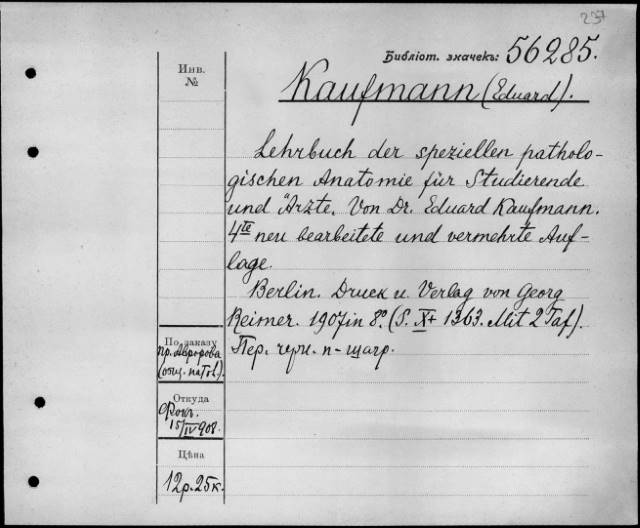 237
Библіот. значекъ: 56285.
Инв.
№
Kaufmann (Eduard).
Lehrbuch der speziellen patholo-
gischen Anatomie für Studierende
und Ärzte. Von Dr. Eduard Kaufmann.
4te neu bearbeitete und vermehrte Auf-
lage.
Berlin. Druck u. Verlag von Georg
Reimer. 1907 in 8° (S. X + 1363. Mit 2 Taf.).
Пер. черн. п-шагр.
По заказу
пр. Авророва
(общ. патол.).
Откуда
15/IV 908.
Цѣна
12р. 25к.